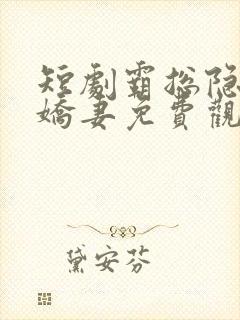 短劇霸総隐
嬌妻免費觀
黛安芬